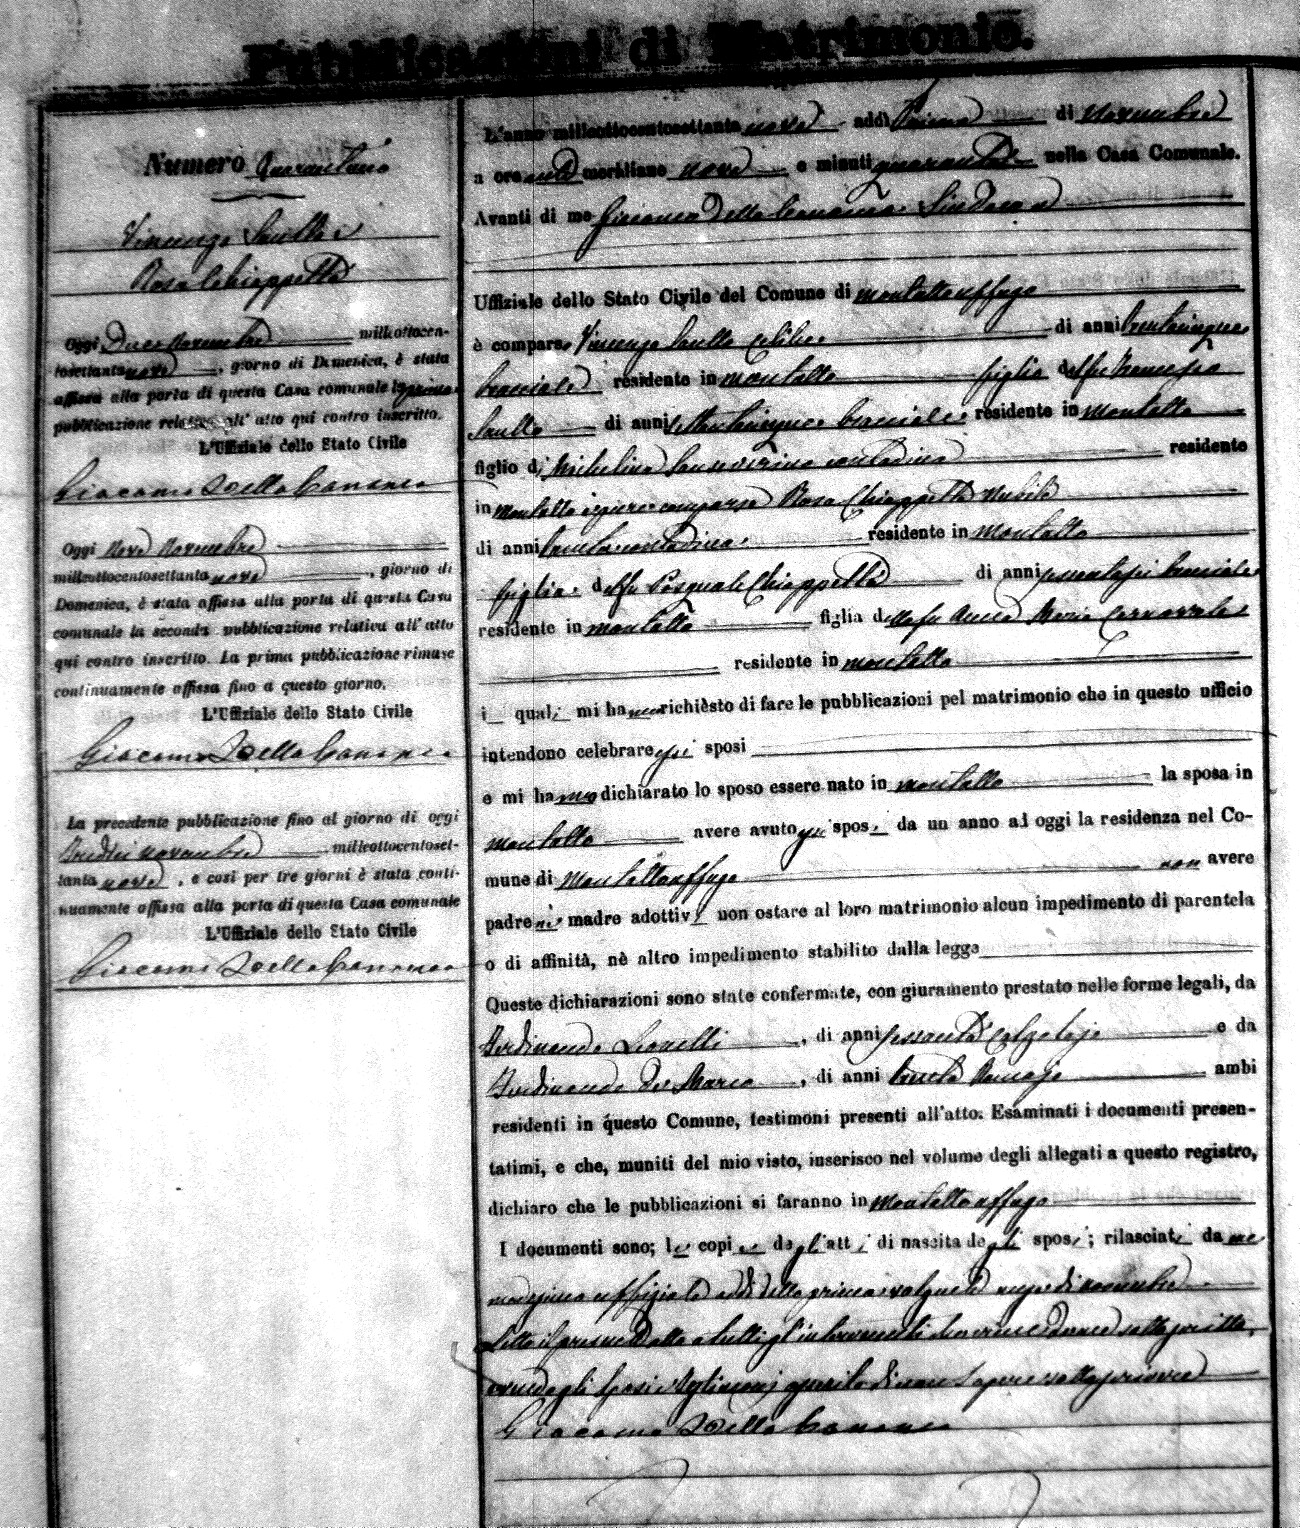 Pubblicazioni di Matrimonio.
Numero Quarantuno
Vincenzo Saullo e
Rosa Chiappetta
Oggi Due Novembre milleottocen-
tosettanta nove, giorno di Domenica, è stata
affissa alla porta di questa Casa comunale la prima
pubblicazione relativa all'atto qui contro inscritto.
L'Uffiziale dello Stato Civile
Giacomo Della Cananea
Oggi Nove Novembre
milleottocentosettanta nove, giorno di
Domenica, è stata affissa alla porta di questa Casa
comunale la seconda pubblicazione relativa all'atto
qui contro inscritto. La prima pubblicazione rimase
continuamente affissa fino a questo giorno.
L'Uffiziale dello Stato Civile
Giacomo Della Cananea
La precedente pubblicazione fino al giorno di oggi
tredici novembre milleottocentoset-
tanta nove, e così per tre giorni è stata conti-
nuamente affissa alla porta di questa Casa comunale
L'Uffiziale dello Stato Civile
Giacomo Della Cananea
L'anno milleottocentosettanta nove addì Primo di Novembre
a ore anti meridiane nove e minuti quaranta nella Casa Comunale.
Avanti di me Giacomo Della Cananea Sindaco
Uffiziale dello Stato Civile del Comune di Montalto uffugo
è comparso Vincenzo Saullo celibe di anni trentacinque
bracciale residente in Montalto figlio del fu Francesco
Saullo di anni settantacinque bracciale residente in Montalto
figlio di Michelina Sanseverino contadina residente
in Montalto è pure comparsa Rosa Chiappetta Nubile
di anni trenta contadina residente in Montalto
figlia del fu Pasquale Chiappetta di anni sessantasei bracciale
residente in Montalto figlia della fu Anna Maria Carnovale
residente in Montalto
i quali mi hanno richiesto di fare le pubblicazioni pel matrimonio che in questo ufficio
intendono celebrare essi sposi
e mi hanno dichiarato lo sposo essere nato in Montalto la sposa in
Montalto avere avuto gli sposi da un anno ad oggi la residenza nel Co-
mune di Montalto uffugo non avere
padre nè madre adottivi non ostare al loro matrimonio alcun impedimento di parentela
o di affinità, nè altro impedimento stabilito dalla legge
Queste dichiarazioni sono state confermate, con giuramento prestato nelle forme legali, da
Ferdinando Lionelli, di anni sessanta Calzolajo e da
Ferdinando De Marco, di anni trenta ambi
residenti in questo Comune, testimoni presenti all'atto. Esaminati i documenti presen-
tatimi, e che, muniti del mio visto, inserisco nel volume degli allegati a questo registro,
dichiaro che le pubblicazioni si faranno in Montalto uffugo
I documenti sono; le copie degli atti di nascita degli sposi; rilasciati da me
medesimo uffiziale addì detto primo novembre
Letto il presente atto a tutti gl'intervenuti sottoscritto,
avendo gli sposi e testimonj asserito di non sapere sottoscrivere
Giacomo Della Cananea